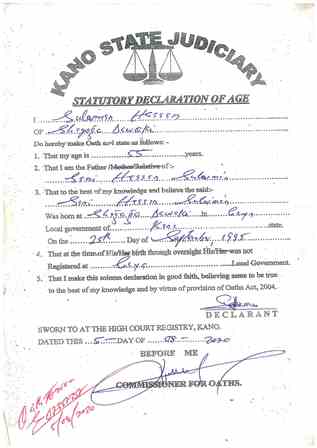 KANO STATE JUDICIARY
STATUTORY DECLARATION OF AGE
I Sulaiman Hassan
OF
Do hereby make Oath and state as follows:-
1. That my age is 55 years.
2. That I am the Father /Mother/Relative of:-
Hassan
3. That to the best of my knowledge and believe the said:-
Hassan
Was born at in
Local government of Kano state.
On the 25th Day of September, 1995
4. That at the time of His/Her birth through oversight His/Her was not
Registered at Local Government.
5. That I make this solemn declaration in good faith, believing same to be true
to the best of my knowledge and by virtue of provision of Oaths Act, 2004.
DECLARANT
SWORN TO AT THE HIGH COURT REGISTRY, KANO.
DATED THIS 5 DAY OF 08 2020
BEFORE ME
COMMISSIONER FOR OATHS.